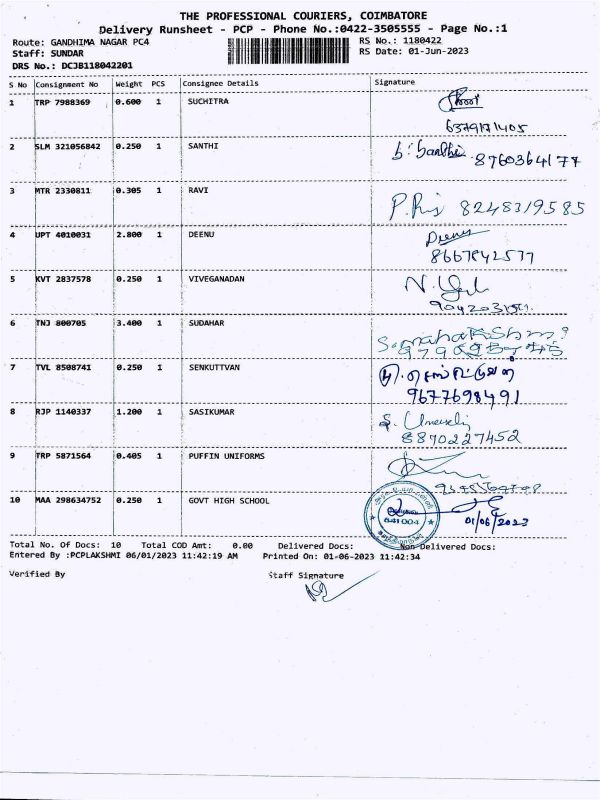 THE PROFESSIONAL COURIERS, COIMBATORE
Delivery Runsheet - PCP - Phone No.:0422-3505555 - Page No.:1
Route: GANDHIMA NAGAR PC4 RS No.: 1180422
Staff: SUNDAR RS Date: 01-Jun-2023
DRS No.: DCJB118042201
S No Consignment No Weight PCS Consignee Details Signature
1 TRP 7988369 0.600 1 SUCHITRA
6379171405
2 SLM 321056842 0.250 1 SANTHI B. Santhi 8760364177
3 MTR 2330811 0.305 1 RAVI 8248319585
4 UPT 4010031 2.800 1 DEENU Deenu
8667842577
5 KVT 2837578 0.250 1 VIVEGANADAN
6 TNJ 800705 3.400 1 SUDAHAR
7 TVL 8508741 0.250 1 SENKUTTVAN
9677698491
8 RJP 1140337 1.200 1 SASIKUMAR
8870227452
9 TRP 5871564 0.405 1 PUFFIN UNIFORMS
10 MAA 298634752 0.250 1 GOVT HIGH SCHOOL
641004
01/06/2023
Total No. Of Docs: 10 Total COD Amt: 0.00 Delivered Docs: Non-Delivered Docs:
Entered By :PCPLAKSHMI 06/01/2023 11:42:19 AM Printed On: 01-06-2023 11:42:34
Verified By Staff Signature